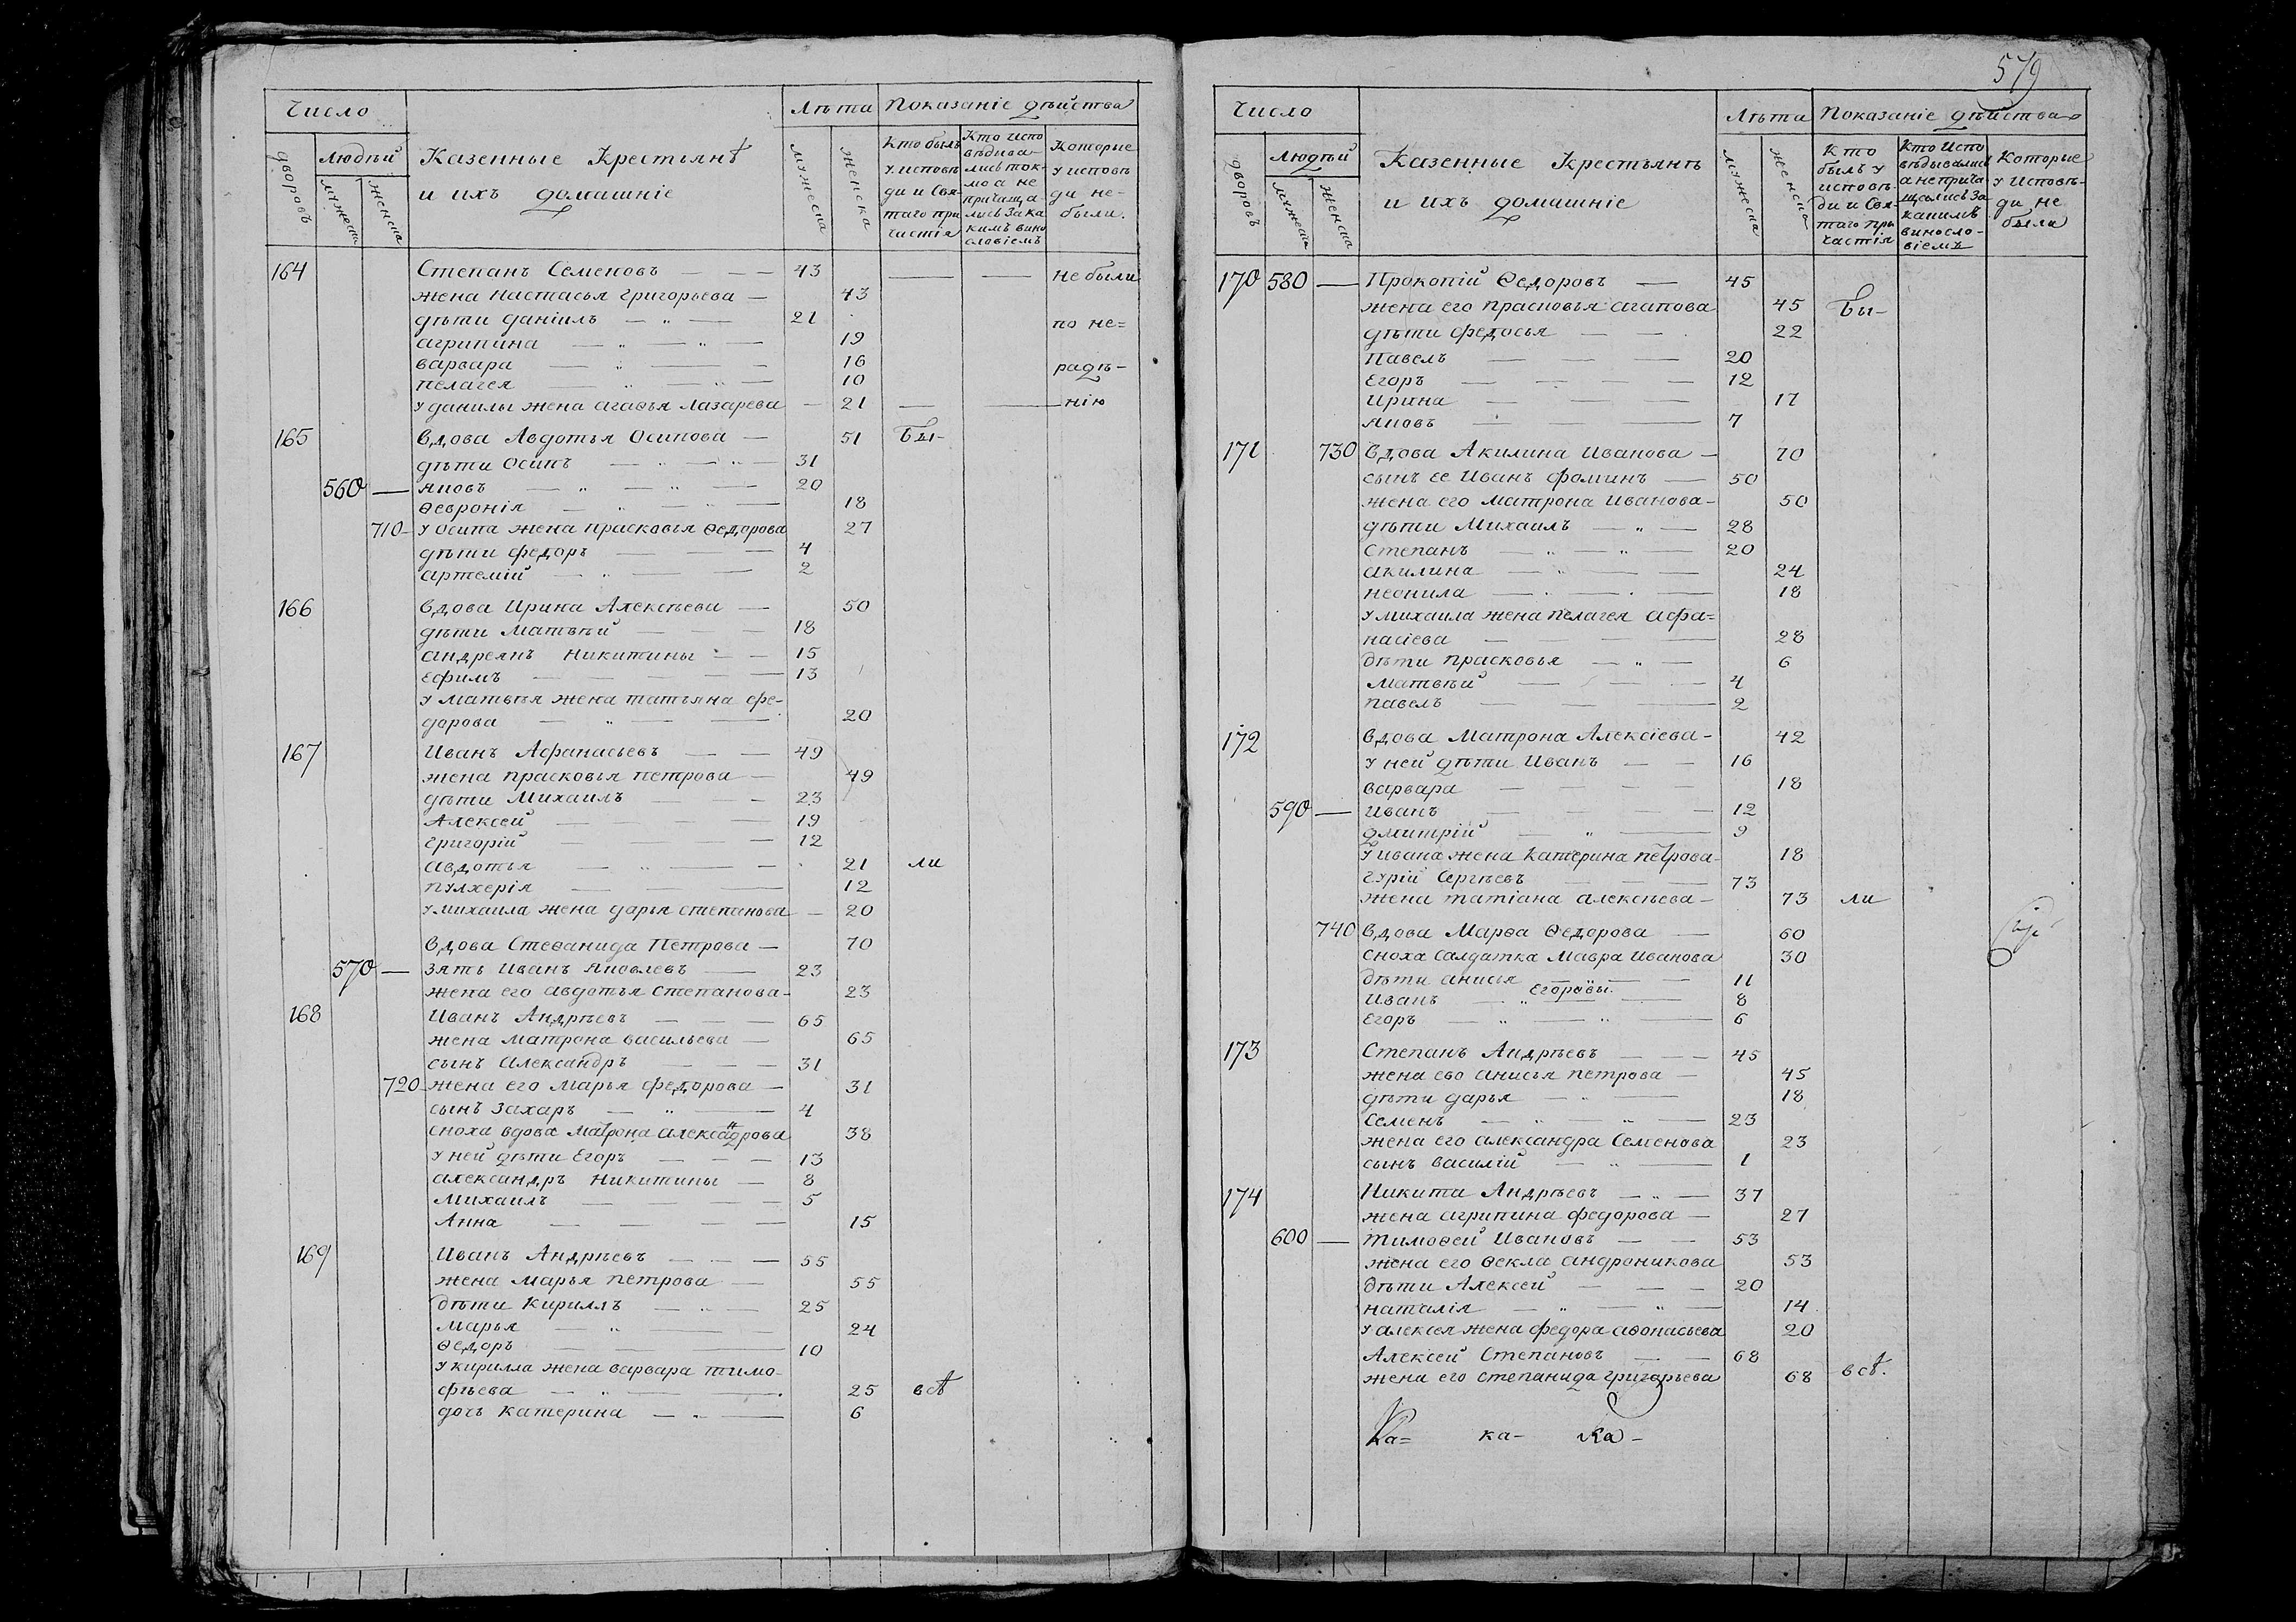 Число
Казенные Крестьянѣ
и ихъ домашніе
Лѣта
Показаніе дѣйства
дворовъ
Людѣй
мужеска
женска
мужеска
женска
Кто былъ
у исповѣ
ди и Свя-
таго при
частія
Кто испо
вѣдыва-
лись ток-
мо а не
причаща-
лись за ка
кимъ вино
словіемъ
Которые
у исповѣ
ди не-
были.
164 Степанъ Семеновъ — — — 43 — — не были
жена Настасья григорьева — 43
дѣти даніилъ — „ — 21 по не=
агрипина — „ — „ — 19
варвара — „ — — 16 радѣ-
пелагея — „ — „ — 10
у данилы жена агаѳья Лазарева — 21 — — нію
165 Вдова Авдотья Осипова — 51 бы-
дѣти Осипъ — „ — „ — 31
560 — яковъ — „ — „ — 20
Ѳевронія — „ — „ — 18
710- у Осипа жена прасковья Ѳедорова 27
дѣти федоръ — — — 4
артемій — „ — — 2
166 Вдова Ирина Алексѣева — 50
дѣти Матвѣй — — — 18
андреянъ Никитины — — 15
Ефимъ — — — — 13
у Матвѣя жена татьяна фе-
дорова — „ — — 20
167 Иванъ Афанасьевъ — — 49
жена прасковья петрова — 49
дѣти Михаилъ — — 23
Алексей — — — — 19
григорій — — — — 12
авдотья — „ — — 21 ли
пулхерія — — — 12
у михаила жена дарья степанова — 20
Вдова Стеѳанида Петрова — 70
570 — Зять Иванъ Яковлевъ — 23
жена его авдотья Степанова- 23
168 Иванъ Андрѣевъ — — — 65
жена матрона васильева — 65
сынъ Александръ — — — 31
720 жена его Марья федорова — 31
сынъ Захаръ — „ — 4
сноха вдова Матрона александрова 38
у ней дѣти Егоръ — — — 13
александръ Никитины — 8
Михаилъ — — — 5
Анна — — — — 15
169 Иванъ Андрѣевъ — — — 55
жена Марья петрова — 55
дѣти Кириллъ — „ — 25
Марья — „ — — 24
Ѳедоръ — — 10
у кирилла жена варвара тимо-
фѣева — „ — — 25 всѣ
дочь катерина — „ — 6
579
Число
Казенные Крестьянѣ
и ихъ домашніе
Лѣта
Показаніе дѣйства
дворовъ
Людѣй
мужеска
женска
мужеска
женска
Кто
былъ у
исповѣ-
ди и Свя-
таго при
частія
Кто Испо
вѣдывались
а не прича
щались За
какимъ
виносло-
віемъ
Которые
у Исповѣ-
ди не
были
170 580 — Прокопій Ѳедоровъ — 45
жена его прасковья агапова 45 бы-
дѣти федосья — — 22
Павелъ — — — 20
Егоръ — — — — 12
Ирина — — — 17
яковъ — — — 7
171 730 Вдова Акилина Иванова — 70
сынъ ее Иванъ фоминъ — 50
жена его матрона Иванова- 50
дѣти Михаилъ — „ — 28
Степанъ — „ — „ — 20
акилина — „ — — 24
неонила — „ — — 18
у михаила жена пелагея афа=
насіева — — — 28
дѣти прасковья — „ — 6
Матвѣй — — — 4
павелъ — — — 2
172 Вдова Матрона Алексіева- 42
у ней дѣти Иванъ — — 16
варвара — — — — 18
590 — Иванъ — — — 12
дмитрій — „ — 9
у ивана жена катерина петрова- 18
Гурій Сергѣевъ — — — 73
жена татіана алексѣева — 73 ли
740 Вдова Марѳа Ѳедорова — 60
сноха салдатка Мавра Иванова 30
дѣти анисья — — 11
Иванъ — „ Егоровы. — 8
Егоръ — „ — „ — 6
173 Степанъ Андрѣевъ — — — 45
жена ево анисья петрова — 45
дѣти дарья — „ — 18
Семенъ — „ — „ — 23
жена его александра Семенова 23
сынъ василій — „ — 1
174 Никита Андрѣевъ — „ — 37
жена агрипина федорова — 27
600 — Тимоѳей Ивановъ — — 53
жена его Ѳекла андроникова 53
дѣти Алексей — — — 20
наталія — „ — „ — 14
у алексея жена федора аѳонасьева 20
Алексей Степановъ — — 68
жена его степанида григорьева 68 всѣ.
Ка= ка- ка-